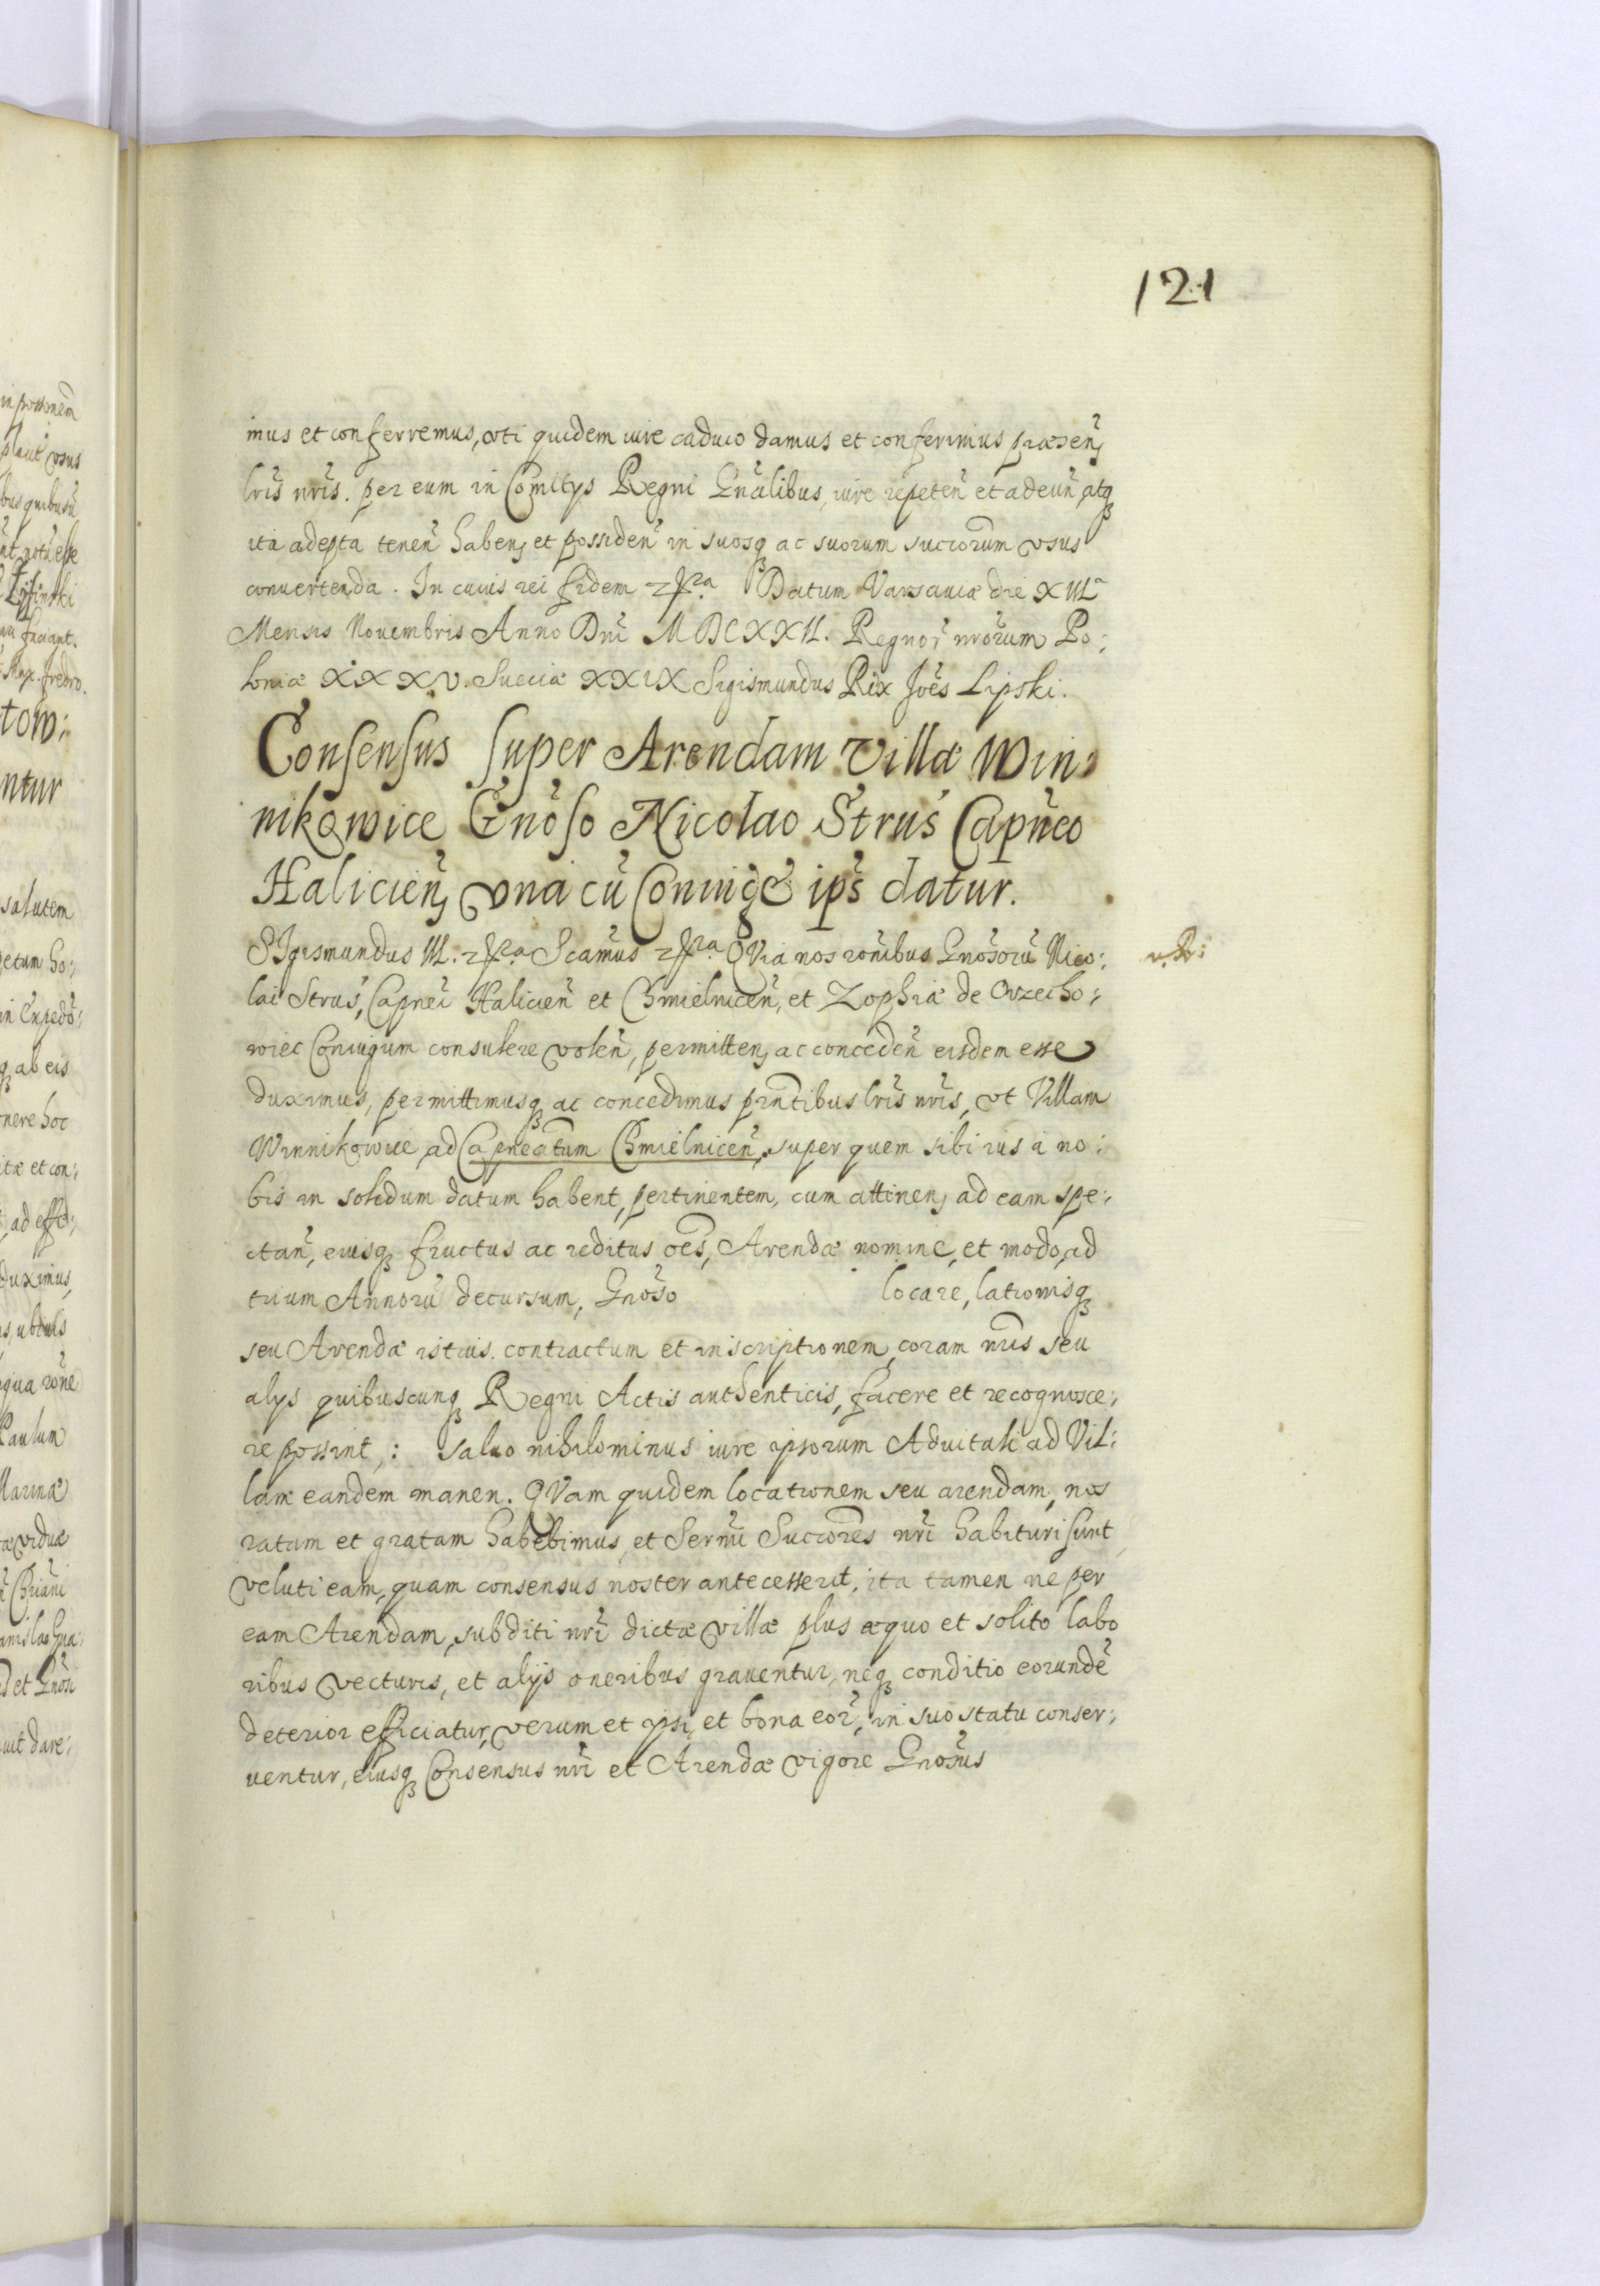 121
imus et conferremus, vti quidem iure caduco damus et conferimus præsen;
lris nris. per eum in Comitys Regni Gnalibus, iure repeten et adeun, atq;
ita adepta tenen haben; et possiden in suosq; ac suorum succorum vsus
conuertenda. In cuius rei fidem Datum Varsauiæ die XIII
Mensis Nouembris Anno Dni MDCXXII. Regnor nrorum Po:
loniæ XXXV. Sueciæ XXIX Sigismundus Rex Joes Lipski.
Consensus super Arendam Villæ Win:
nikowice Gnoso Nicolao Strus Capneo
Halicien; vna cu Coniuge ips datur.
SIgismundus III. Scamus QVia nos ronibus Gnosoru Nico:
lai Strus, Capnei Halicien et Chmielnicen, et Zophiæ de Orzecho:
wiec Coniugum consulere volen, permitten; ac conceden eisdem esse
duximus, permittimusq; ac concedimus pntibus lris nris, vt Villam
Winnikowice, ad Capneatum Chmielnicen, super quem sibi ius a no:
bis in solidum datum habent, pertinentem, cum attinen; ad eam spe:
ctan, eiusq; fructus ac reditus oes, Arendæ nomine, et modo, ad
trium Annoru decursum, Gnoso locare, lationisq;
seu Arendæ istius contractum et inscriptionem, coram nris seu
alys quibuscunq; Regni Actis authenticis, facere et recognosce:
re possint,: saluo nihilominus iure ipsorum Aduitali ad Vil:
lam eandem manen. QVam quidem locationem seu arendam, nos
ratam et gratam habebimus, et Sermi Succores nri habituri sunt,
veluti eam, quam consensus noster antecesserit, ita tamen ne per
eam Arendam, subditi nri dictæ villæ plus æquo et solito labo
ribus vecturis, et alijs oneribus grauentur, neq; conditio eorunde
deterior efficiatur, verum et ipsi, et bona eor, in suo statu conser:
uentur, eiusq; Consensus nri et Arendæ vigore Gnosus